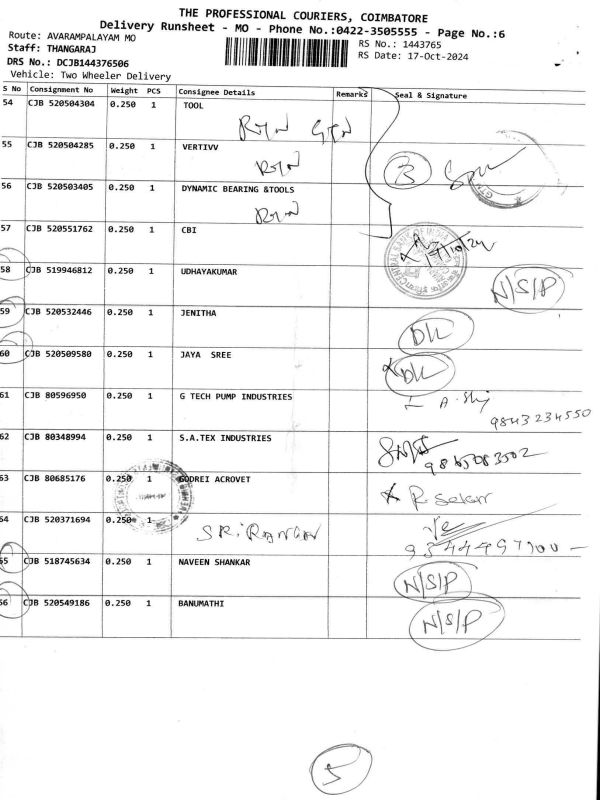 THE PROFESSIONAL COURIERS, COIMBATORE
Delivery Runsheet - MO - Phone No.:0422-3505555 - Page No.:6
Route: AVARAMPALAYAM MO
RS No.: 1443765
Staff: THANGARAJ
RS Date: 17-Oct-2024
DRS No.: DCJB144376506
Vehicle: Two Wheeler Delivery
S No Consignment No Weight PCS Consignee Details Remarks Seal & Signature
54 CJB 520504304 0.250 1 TOOL
55 CJB 520504285 0.250 1 VERTIVV
3
56 CJB 520503405 0.250 1 DYNAMIC BEARING &TOOLS
57 CJB 520551762 0.250 1 CBI
17/10/24
58 CJB 519946812 0.250 1 UDHAYAKUMAR
N/S/P
59 CJB 520532446 0.250 1 JENITHA
DK
60 CJB 520509580 0.250 1 JAYA SREE
DK
61 CJB 80596950 0.250 1 G TECH PUMP INDUSTRIES
9843234550
62 CJB 80348994 0.250 1 S.A.TEX INDUSTRIES
63 CJB 80685176 0.250 1 GODREI ACROVET
64 CJB 520371694 0.250 1
65 CJB 518745634 0.250 1 NAVEEN SHANKAR
N/S/P
66 CJB 520549186 0.250 1 BANUMATHI
N/S/P
5